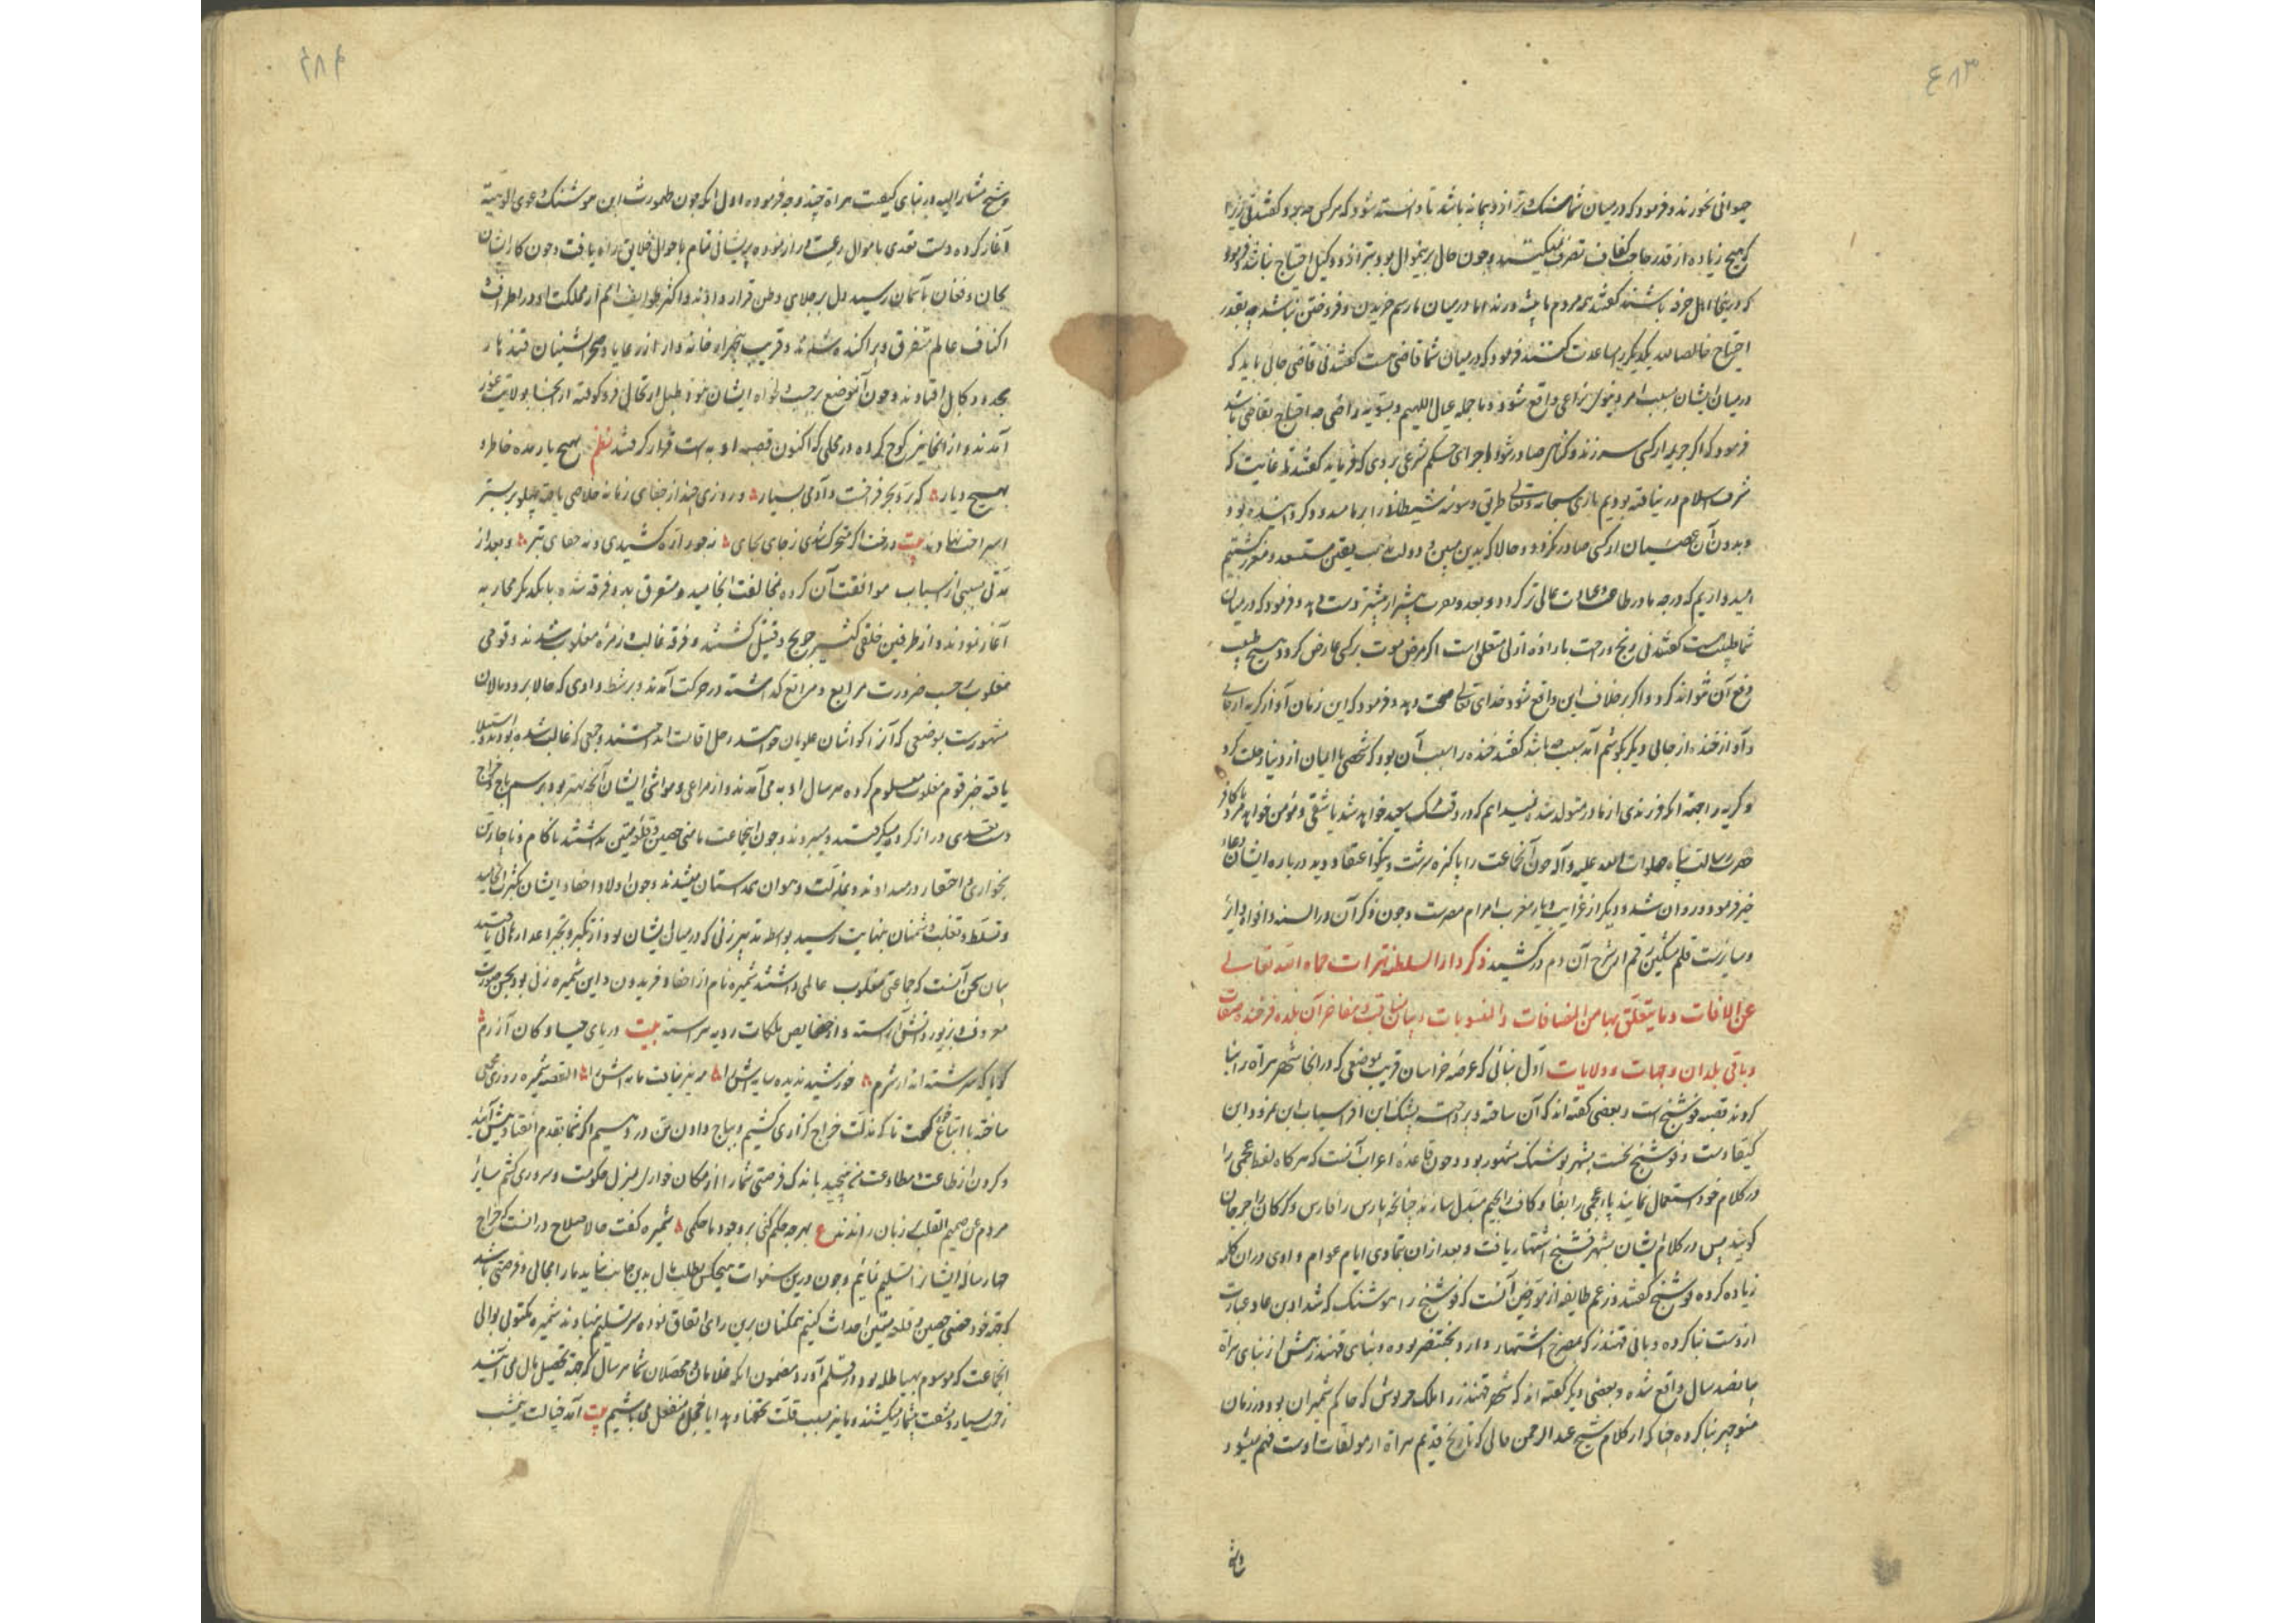 ۴۸۳
حیوانی نخورند و فرمود که درمیان شما سنک و ترازو و پیمانه باشد تا دانسته شود که هرکس چه برد گفتند نی زیرا
که هیچ زیاده از قدر حاجت کفاف تصرف نمیکنند و چون حال برینمنوال بود بترازو و کیل احتیاج نباشد فرمود
که درینجا اهل حرفه باشند گفتند همه مردم ما پیشه ورند اما درمیان ما رسم خریدن و فروختن نباشد چه بقدر
احتیاج خالصا لله یکدیگر را مساعدت کنند فرمود که درمیان شما قاضی هست گفتند نی قاضی جائی باید که
درمیان ایشان بسبب امر دنیوی نزاعی واقع شود و ما جمله عیال اللهیم و بسویه راضی چه احتیاج بقاضی باشد
فرمود که اگر جریمه از کسی سر زند و گناهی صادر شود اجرای حکم شرعی بر وی که فرماید گفتند تا غایت که
شرف اسلام در نیافته بودیم باری سبحانه و تعالی طریق وسوسه شیطان را بر ما مسدود کردانیده بود
و بدون آن عصیان از کسی صادر نکردد و حالا که بدین مبین و دولت مذهب یقین مستسعد و معزز گشتیم
امیدواریم که درجه ما در طاعت و عبادت عالی تر کردد و بعد و قرب بیشتر از پیشتر دست دهد و فرمود که درمیان
شما طبیب هست گفتند نی رنج و راحت باراده ازلی متعلق است اگر مرض موت بر کسی عارض کردد هیچ طبیب
دفع آن نتواند کرد و اگر برخلاف این واقع شود خدای تعالی صحت دهد و فرمود که این زمان آواز گریه از جائی
و آواز خنده از جائی دیگر بگوشم آمد سبب چه باشد گفتند خنده را سبب آن بود که شخصی با ایمان از دنیا رحلت کرد
و گریه را جهة آنکه فرزندی از مادر متولد شده نمیدانیم که در وقت مرگ سعید خواهد شد یا شقی و مؤمن خواهد مرد یا کافر
حضرت رسالت پناه صلوات الله علیه و آله چون آنجماعت را پاکیزه سرشت و نیکو اعتقاد دید درباره ایشان دعاء
خیر فرمود و روان شد و دیگر از غرایب دیار مغرب اهرام مصرست و چون ذکر آن در السنه و افواه دایر
و سایرست قلم مشکین رقم از شرح آن دم درکشید ذکر دار السلطنه هرات حماه الله تعالی
عن الافات و ما یتعلق بها من المضافات و المنسوبات و بیان مناقب و مفاخر آن بلده فرخنده صفات
و باقی بلدان و جهات و ولایات اول بنائی که در عرصه خراسان قریب بموضعی که در آنجا شهر هراة را بنا
کردند قصبه فوشنج است و بعضی گفته اند که آن ساخته و پرداخته پشنگ ابن افراسیاب ابن نمرود ابن
کیقبادست و فوشنج نخست بشهر پوشنک مشهور بود و چون قاعده اعراب آنست که هرگاه لفظ عجمی را
در کلام خود استعمال نمایند پاء عجمی را بفا و کاف را بجیم مبدل سازند چنانچه پارس را فارس و گرگان را جرجان
گویند پس در کلام ایشان بشهر فشنج اشتهار یافت و بعد از ان بتمادی ایام عوام واوی در ان کلمه
زیاده کرده فوشنج گفتند و زعم طایفه از مورخین آنست که فوشنج را هوشنک که شداد بن عاد عبارت
ازوست بنا کرده و بانی قهندز که بمصرخ اشتهار دارد بختنصر بوده و بنای قهندز پیش از بنای هراة
پانصد سال واقع شده و بعضی دیگر گفته اند که شهر قهندز را ملک خرنوش که حاکم شمیران بود در زمان
منوچهر بنا کرده چنانکه از کلام شیخ عبد الرحمن فامی که تاریخ قدیم هراة از مولفات اوست فهم میشود
و شیخ
۴۸۴
و شیخ مشار الیه در بنای کیفیت هراة چند وجه فرموده اول آنکه چون طهمورث ابن هوشنک دعوی الوهیة
آغاز کرده دست تعدی باموال رعیت دراز نموده پریشانی تمام باحوال خلایق راه یافت و چون کار ایشان
بجان و فغان بآسمان رسید دل بر جلای وطن قرار دادند و اکثر طوایف امم از مملکت او در اطراف
اکناف عالم متفرق و پراکنده شدند و قریب پنجهزار خانه دار از رعایا و صحرانشینان قندهار
بحدود کابل افتادند و چون آنموضع بر حسب دلخواه ایشان نبود طبل ارتحال فرو کوفته از آنجا بولایت غور
آمدند و از آنجا نیز کوچ کرده در محلی که اکنون قصبه اوبه است قرار گرفتند نظم بهیچ یار مده خاطر و
بهیچ دیار که بر و بحر فراخست و آدمی بسیار و روزی چند از جفای زمانه خلاصی یافته پهلو بر بستر
استراحت نهادند بیت درخت اگر متحرک شدی ز جای بجای نه جور اره کشیدی و نه جفای تبر و بعد از
مدتی بسببی از اسباب موافقت آن گروه بمخالفت انجامید و متفرق بدو فرقه شده با یکدیگر محاربه
آغاز نمودند و از طرفین خلقی کثیر جریح و قتیل گشتند و فرقه غالب و زمره مغلوب شدند و قومی
مغلوب بحسب ضرورت مرابع و مراتع گذاشته در حرکت آمدند و بر شط وادی که حالا برود مالان
مشهورست بموضعی که آنرا کواشان علویان خوانند رحل اقامت انداختند و جمعی که غالب شده بودند و استیلا
یافته خبر قوم مغلوب معلوم کرده هر سال اوبه می آمدند و از مراعی و مواشی ایشان آنچه بهتر بود برسم باج و خراج
دست تعدی دراز کرده میگرفتند و میبردند و چون آنجماعت مامنی حصین و قلعه متین نداشتند ناکام و ناچار تن
بخواری و احتقار درمیدادند و بمذلت و هوان همداستان میشدند و چون اولاد و احفاد ایشان بکثرت انجامید
و تسلط و تغلب دشمنان بنهایت رسید بواسطه تدبیر زنی که درمیان ایشان بود از تکبر و تجبر اعدا رهائی یافتند
بیان سخن آنست که جماعتی مغلوب عالمی داشتند شمیره نام از احفاد فریدون و این شمیره زنی بود بحسن صورت
معروف و بزیور دانش آراسته و از خصایص ملکات ردیه پیراسته بیت دریای حیا و کان آزرم
گویا که سرشته اند از شرم خورشید ندیده سایه اش را مه نیز نیافت مایه اش را القصه شمیره روزی مجمعی
ساخته با اتباع خود گفت تا کی مذلت خراج گذاری کشیم و بباج دادن تن در دهیم اگر شما بقدم انقیاد پیش آئید
و گردن از طاعت و مطاوعت من نپیچید باندک فرصتی شما را از مکان خواری بمنزل حکومت و سروری کشم سایر
مردم عن صمیم القلب زبان راندند ع بهرچه حکم کنی بر وجود ما حکمی شمیره گفت حالا صلاح در آنست که خراج
چهار ساله ایشانرا تسلیم نمائیم و چون درین سنوات هیچکس بطلب مال بدین جانب نیاید ما را مجالی و فرصتی باشد
که جهة خود حصنی حصین و قلعه متین احداث کنیم همکنان برین رای اتفاق نموده سر تسلیم نهادند شمیره مکتوبی بوالی
آنجماعت که موسوم بهیاطله بود در قلم آورد مضمون آنکه غلامان و محصلان شما هر سال که جهة تحصیل مال می آیند
زحمت بسیار و مشقت بیشمار میکشند و ما نیز بسبب قلت تحف و هدایا خجل و منفعل می باشیم بیت آمد خیالت نیمشب